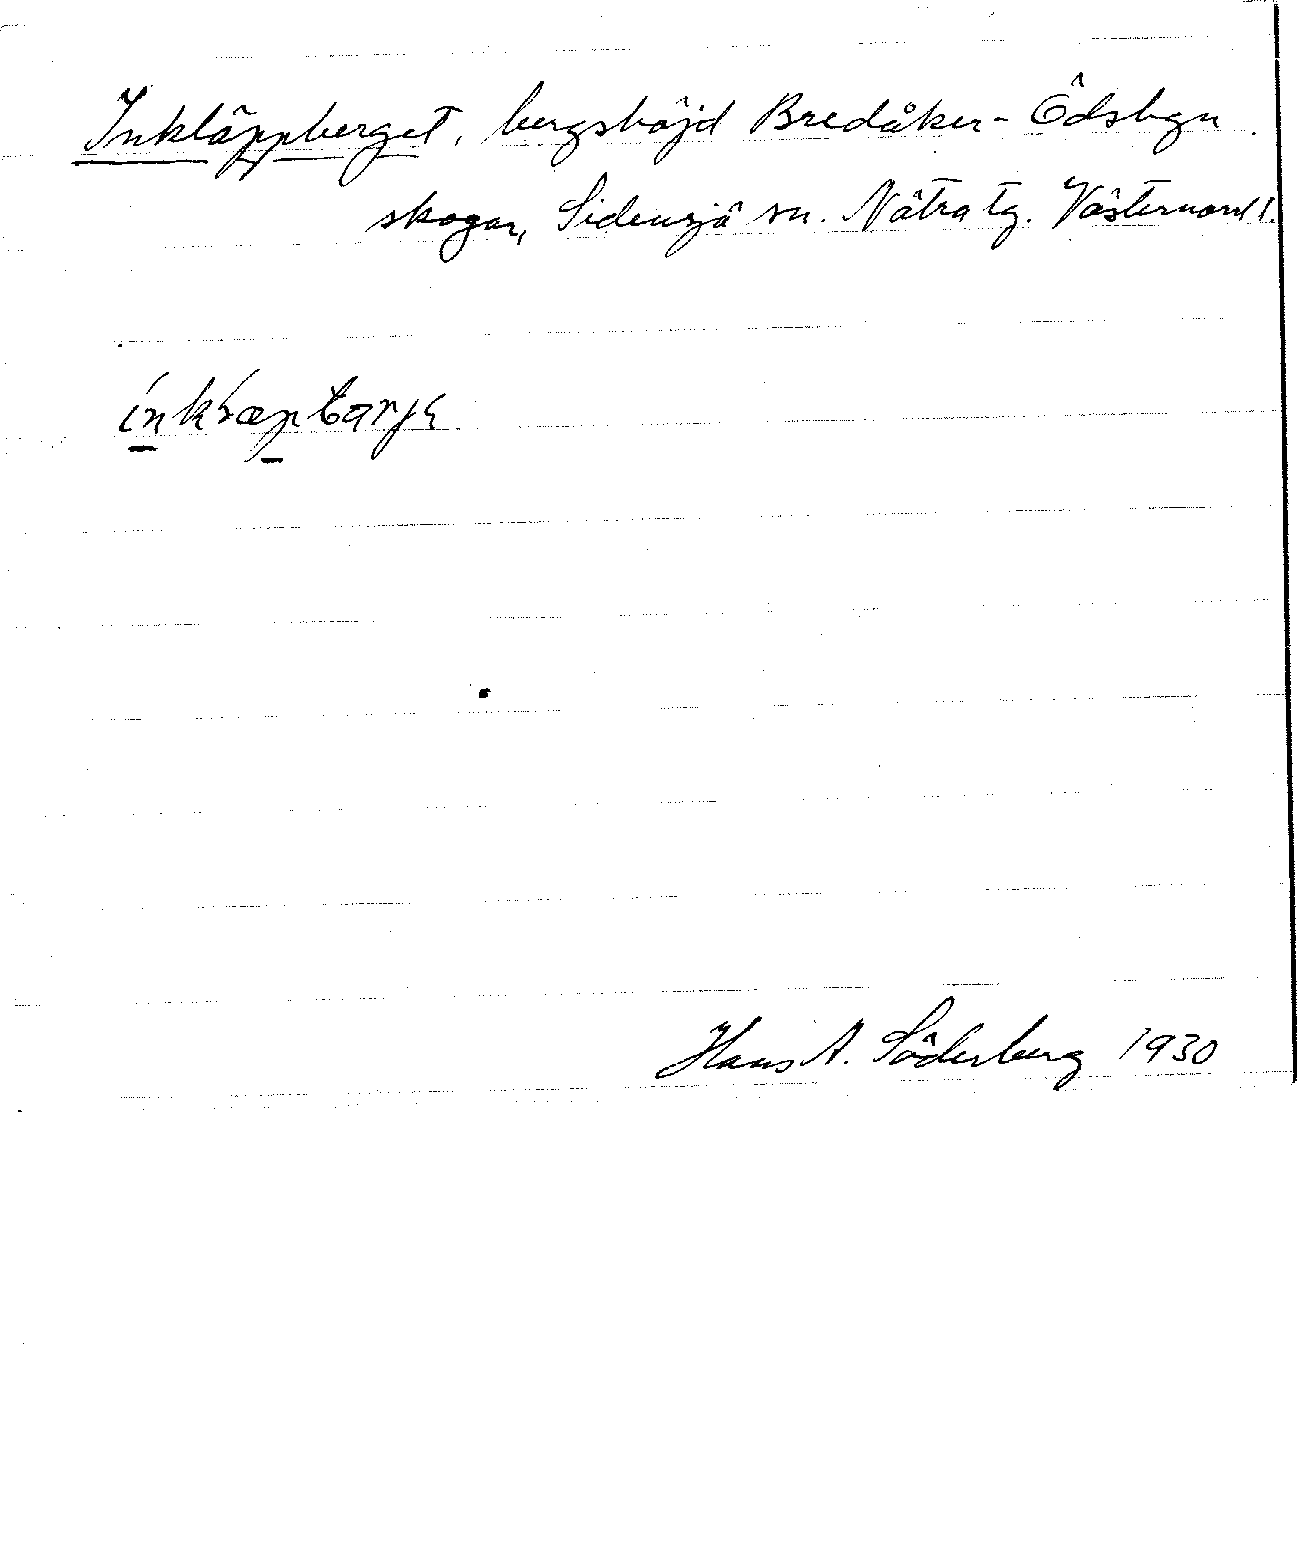 Inkläppberget, bergshöjd Bredåker-Ödsbyn
skogar, Sidensjö sn. Nätra tg. Västernorrl l.
Hans A. Söderberg 1930